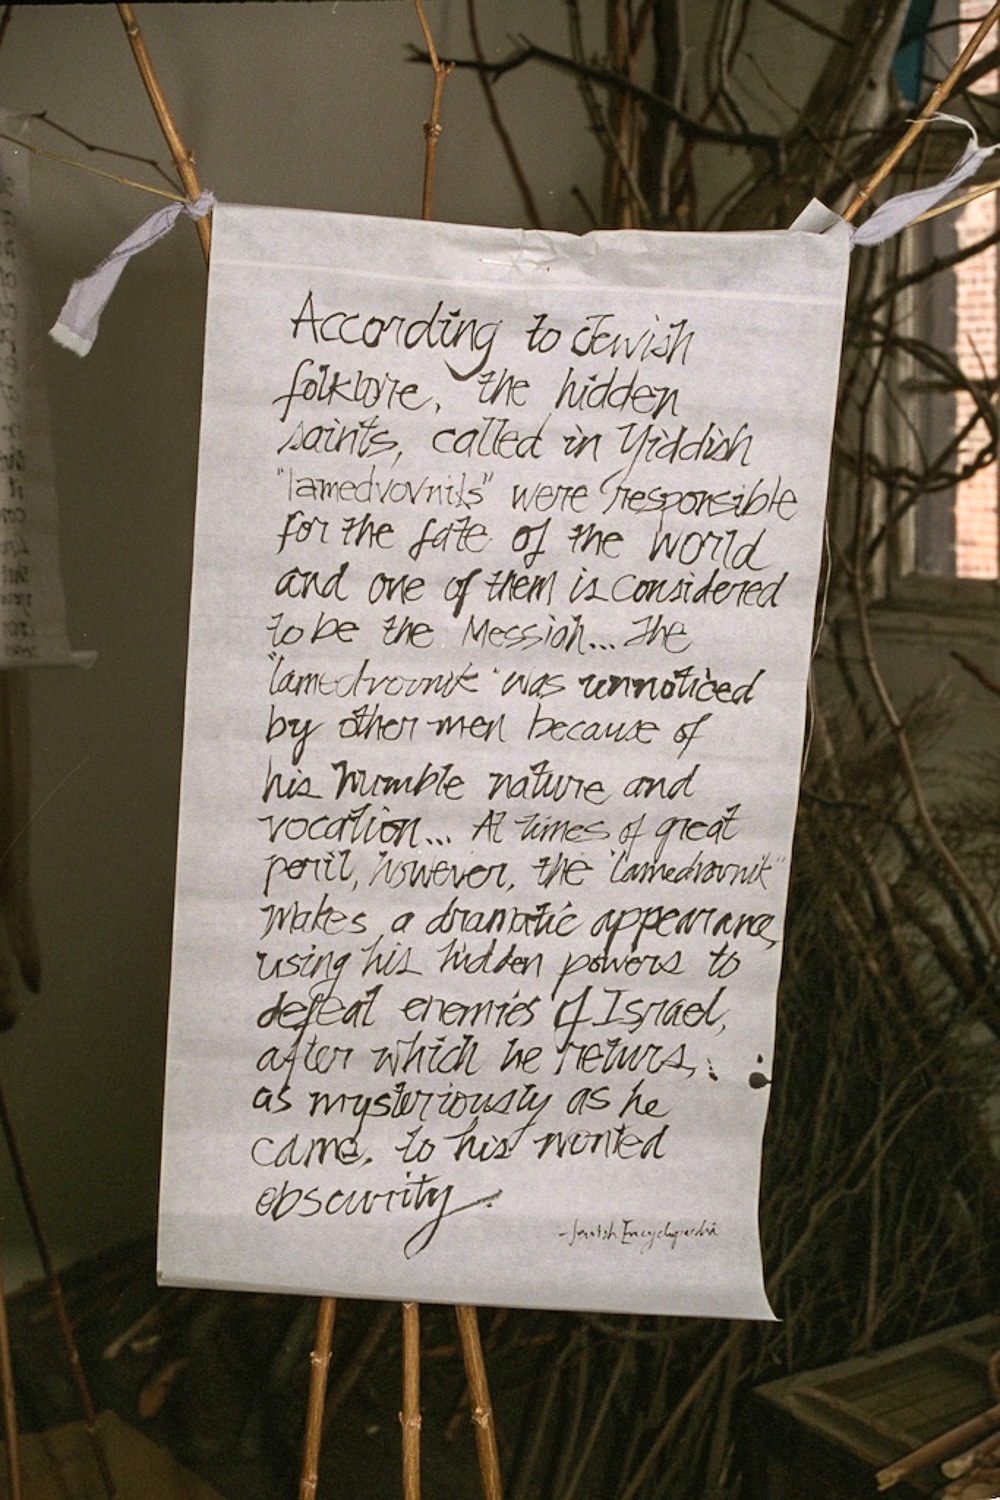 According to Jewish
folklore, the hidden
saints, called in Yiddish
"lamedvovniks" were responsible
for the fate of the world
and one of them is considered
to be the Messiah... The
"lamedvovnik" was unnoticed
by other men because of
his humble nature and
vocation... At times of great
peril, however, the "lamedvovnik"
makes a dramatic appearance,
using his hidden powers to
defeat enemies of Israel,
after which he returs,
as mysteriously as he
came, to his wonted
obscurity.
- Jewish Encyclopedia